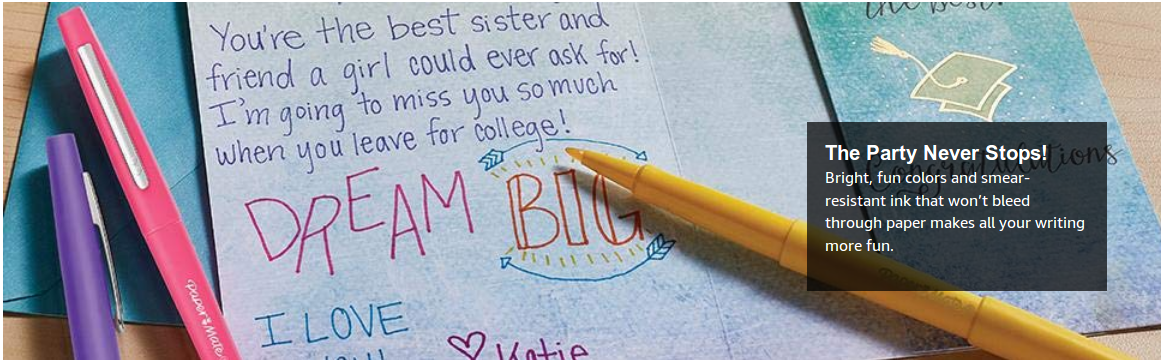 You're the best sister and
friend a girl could ever ask for!
I'm going to miss you so much
when you leave for college!
DREAM BIG
I LOVE
Katie
Paper Mate
the best!
Congratulations
The Party Never Stops!
Bright, fun colors and smear-
resistant ink that won't bleed
through paper makes all your writing
more fun.